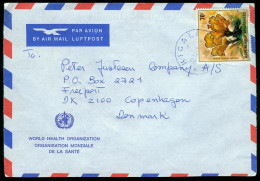 PAR AVION
BY AIR MAIL LUFTPOST
To.
Peter Justesen Company A/S
P.O. Box 2721
Freeport
DK 2100 Copenhagen
Denmark
WORLD HEALTH ORGANIZATION
ORGANISATION MONDIALE
DE LA SANTÉ